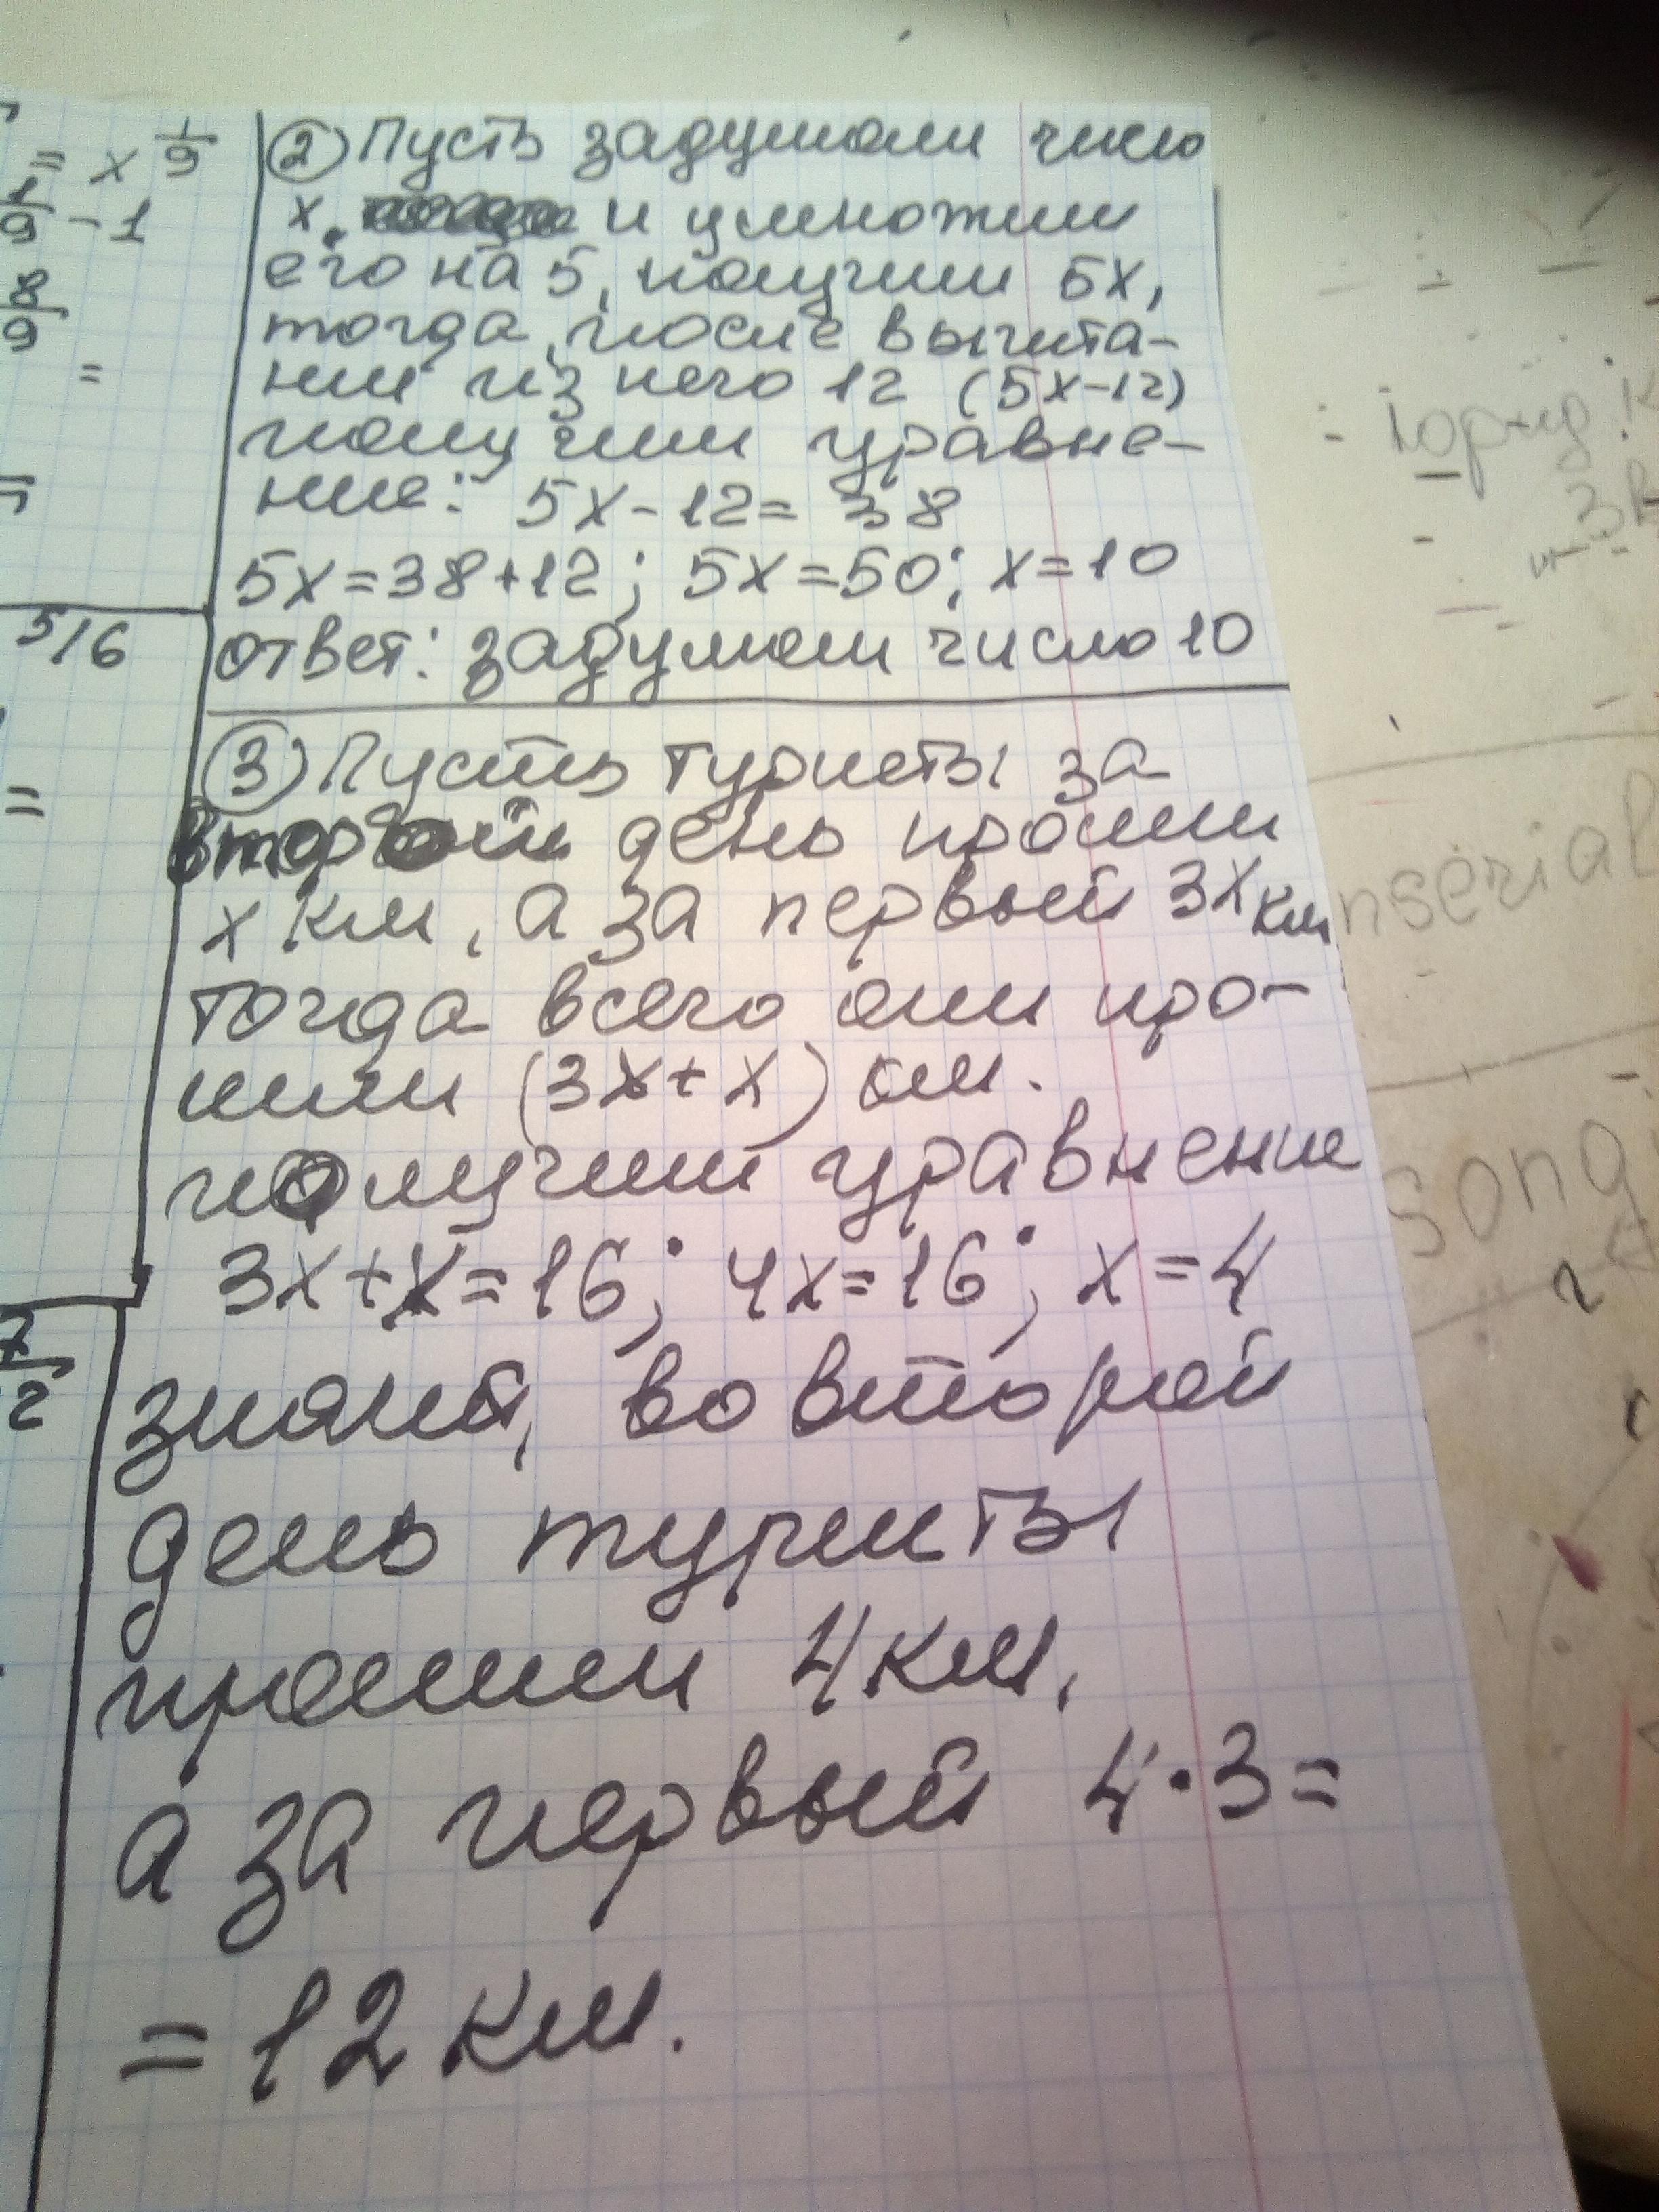 = x 1/9
1/9 - 1
8/9
=
=
5/6
=
7/2
② Пусть задумали число
x. и умножим
его на 5, получим 5x,
тогда, после вычита-
нии из него 12 (5x-12)
получим уравне-
ние: 5x - 12 = 38
5x = 38 + 12; 5x = 50; x = 10
ответ: задумали число 10
③ Пусть туристы за
второй день прошли
x км, а за первый 3x км
тогда всего они про-
шли (3x + x) км.
получим уравнение
3x + x = 16; 4x = 16; x = 4
значит, во второй
день туристы
прошли 4 км,
а за первый 4 · 3 =
= 12 км.
nserial
song